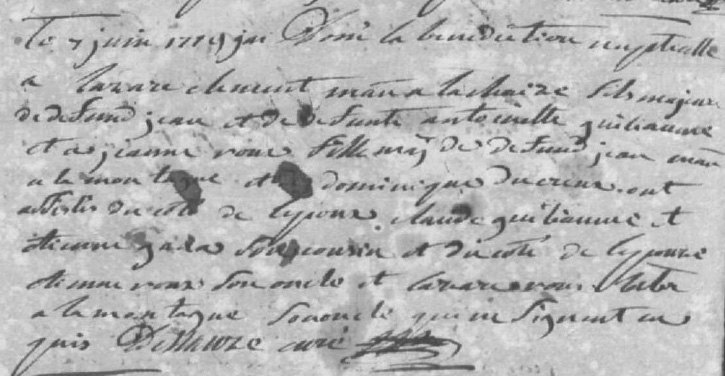 Le 7 juin 1779 jai Donné la benediction nuptialle
a lazare clement man a la chaize fils majeur
de defund jean et de defunte antoinette guilliaume
et a jeanne roux fille maj de defund jean man
a la montagne et dominique ducreux ont
assistés du coté de lepoux claude guilliaume et
etienne son cousin et du coté de lepouse
etienne roux son oncle et lazare roux
a la montagne son oncle qui ne signent en
quis curé